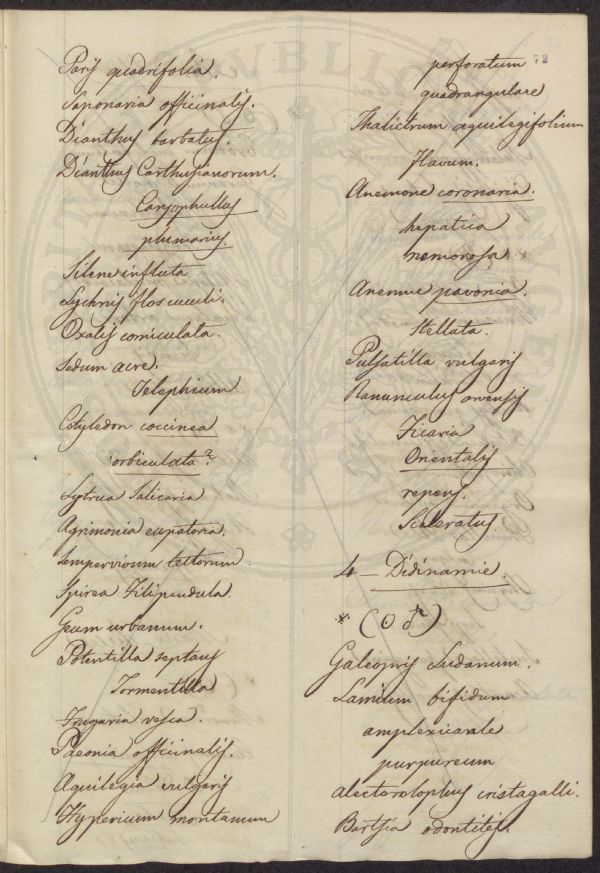 Paris quadrifolia.
Saponaria officinalis.
Dianthus barbatus.
Dianthus Carthusianorum.
Caryophyllus
plumarius.
Silene inflata
Lychnis flos cuculi.
Oxalis corniculata.
Sedum acre.
Telephium
Cotyledon coccinea
orbiculata?
Lytrua Salicaria
Agrimonia eupatoria.
Sempervivum tectorum.
Spirea Filipendula.
Geum urbanum.
Potentilla reptans
Tormentilla
Fragaria vesca.
Paeonia officinalis.
Aquilegia vulgaris
Hypericum montanum
72
perforatum
quadrangulare
Thalictrum aquilegifolium
flavum.
Anemone coronaria.
hepatica
nemorosa.
Anemone pavonia.
stellata.
Pulsatilla vulgaris
Ranunculus arvensis
Ficaria
Orientalis
repens.
Sceleratus.
4 - Didinamie
Galeopsis Ludanum.
Lamium bifidum
amplexicaule
purpureum
alectorolophus cristagalli.
Bartsia odontites